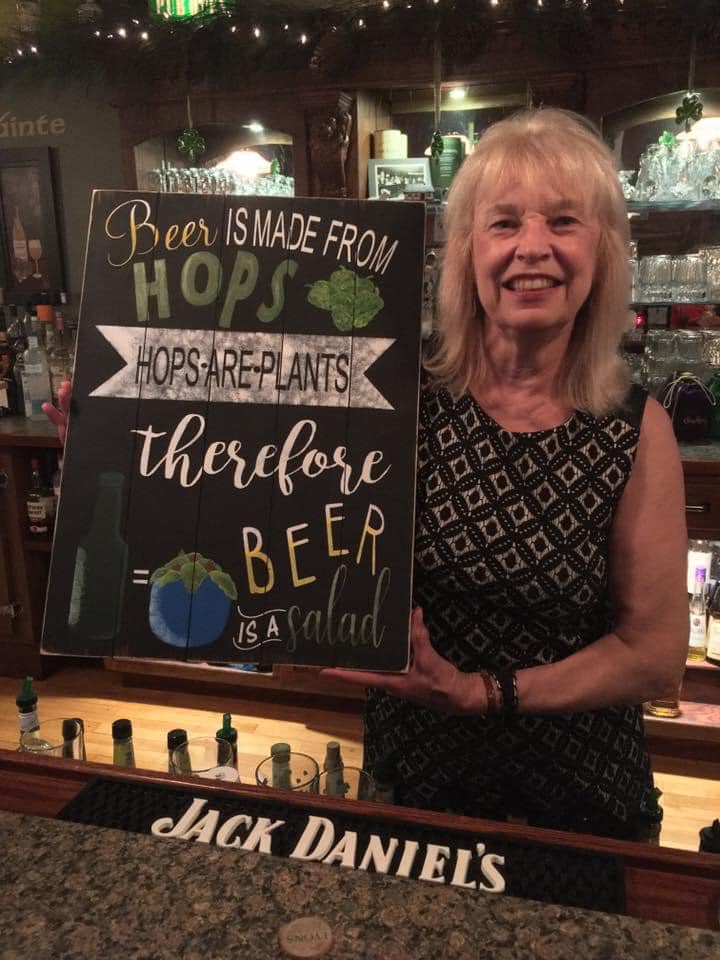 áinte
Beer IS MADE FROM
HOPS
HOPS-ARE-PLANTS
therefore
= BEER
IS A salad
JACK DANIEL'S